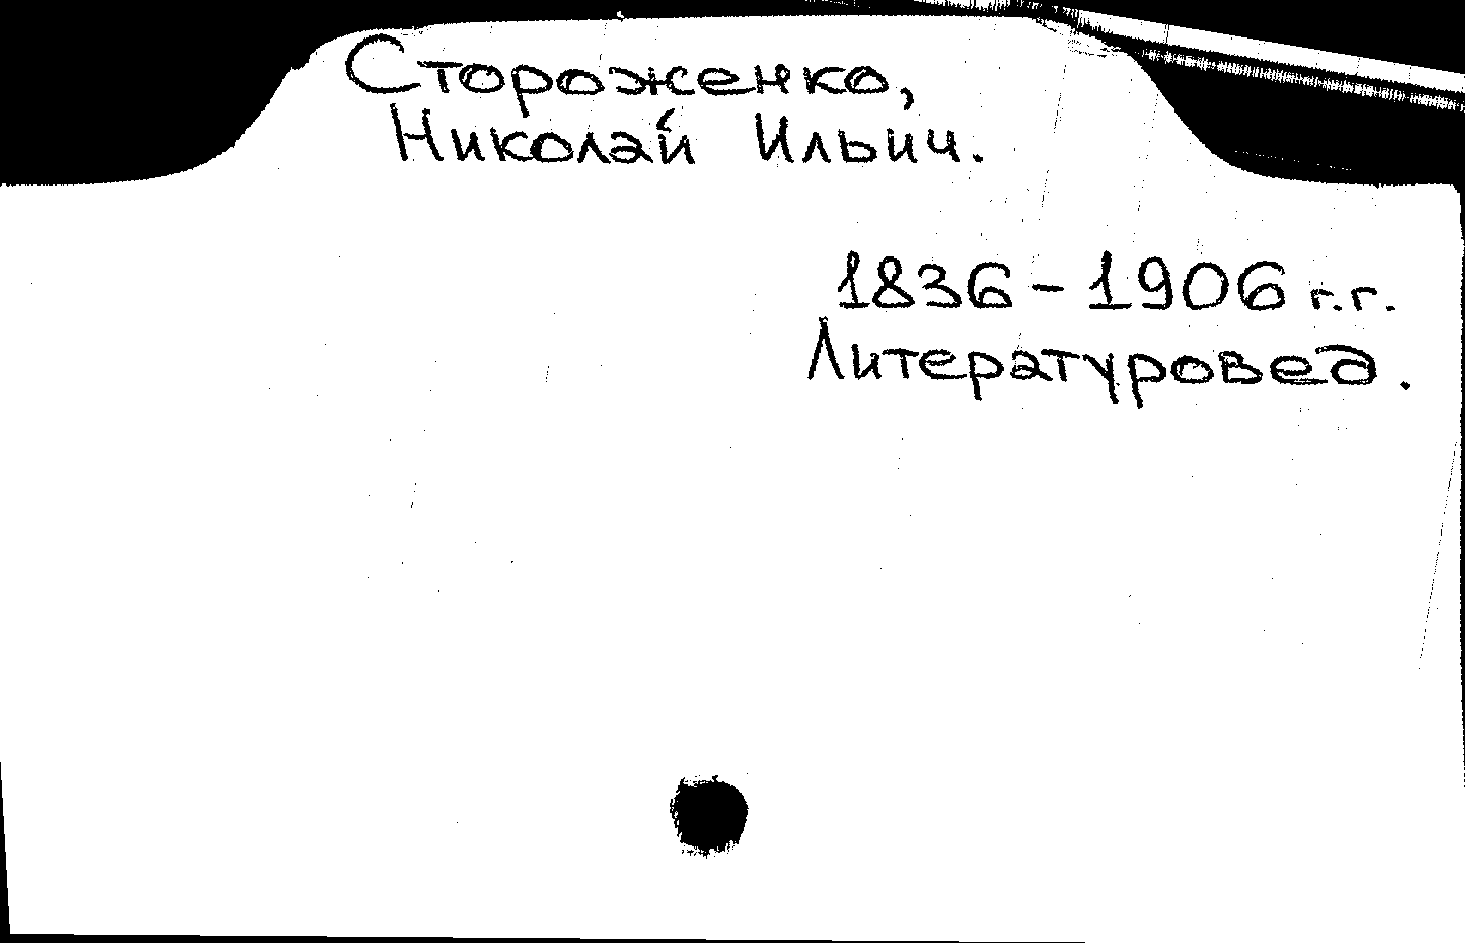 Стороженко,
Николай Ильич.
1836 - 1906 г.г.
Литературовед.